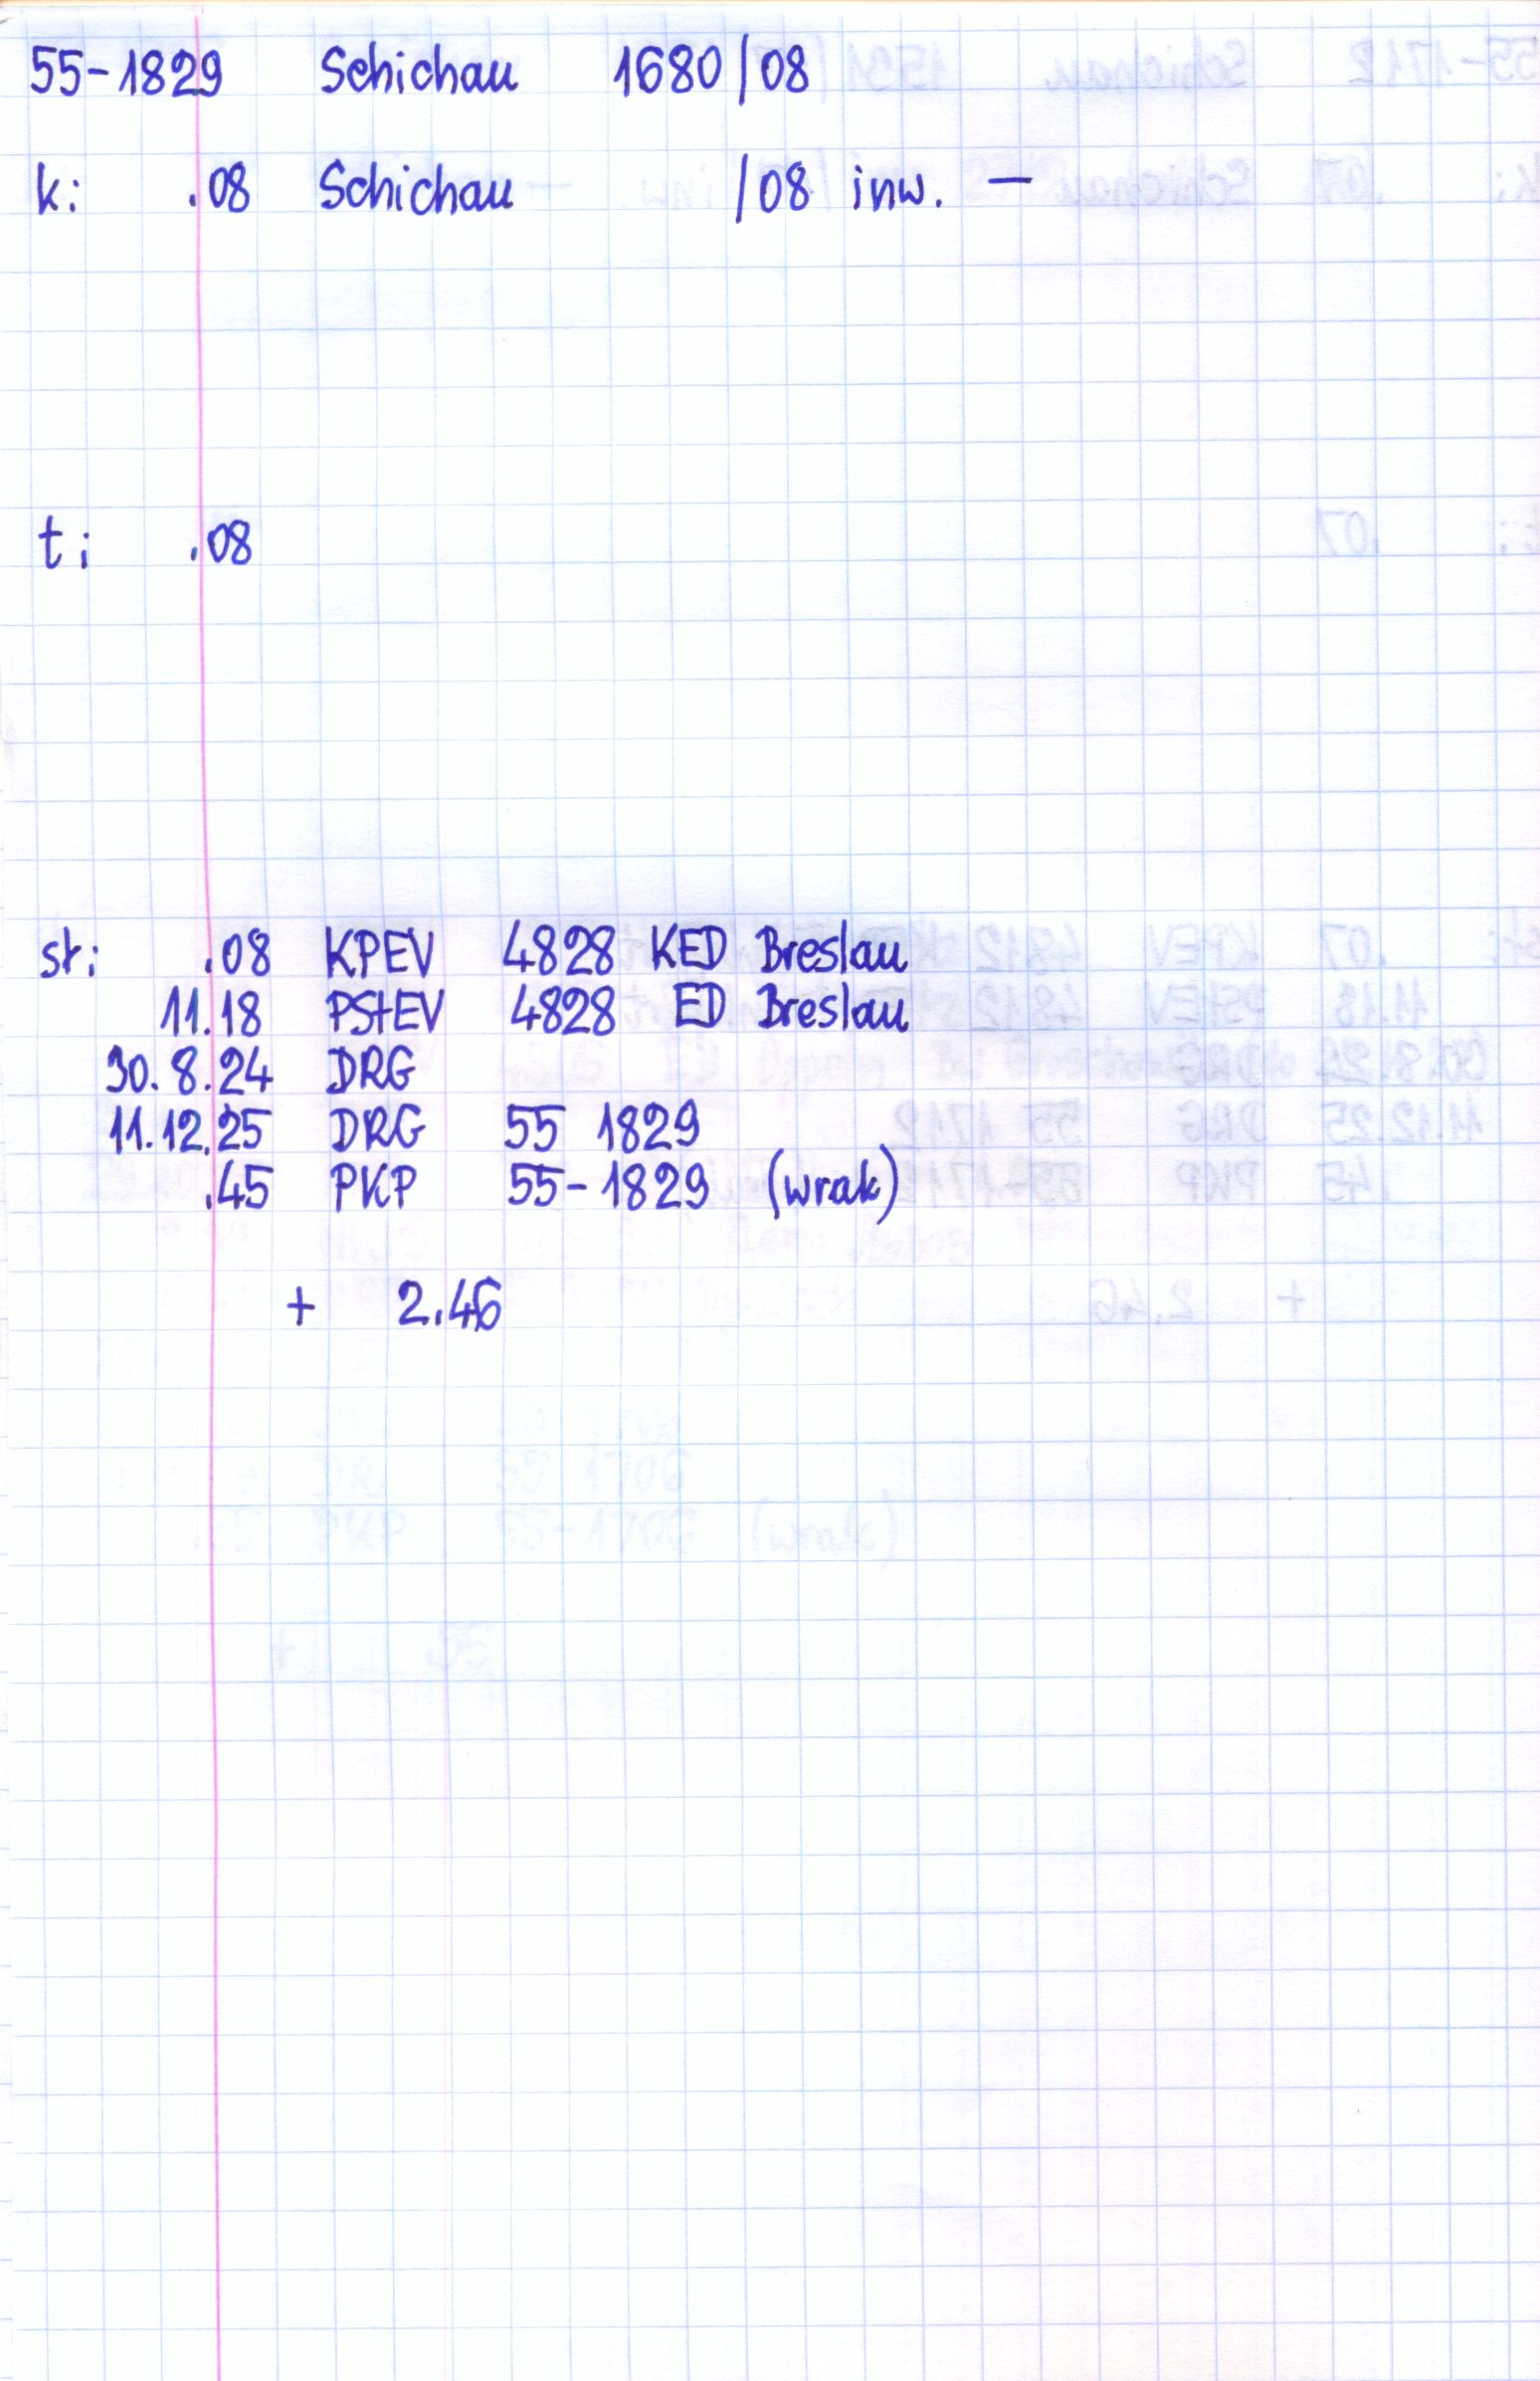 55-1829 Schichau 1680/08
k: .08 Schichau /08 inw. —
t: .08
st: .08 KPEV 4828 KED Breslau
11.18 PStEV 4828 ED Breslau
30.8.24 DRG
11.12.25 DRG 55 1829
.45 PKP 55-1829 (wrak)
+ 2.46